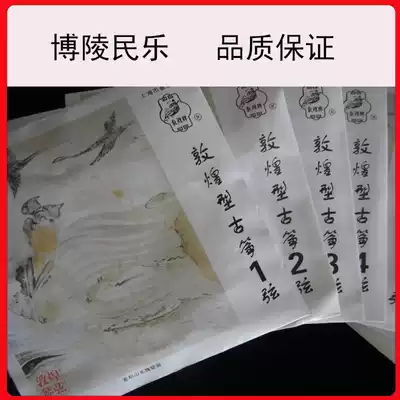 博陵民乐 品质保证
敦煌型古筝1弦
敦煌型古筝2弦
敦煌型古筝3弦
敦煌型古筝4弦
弦